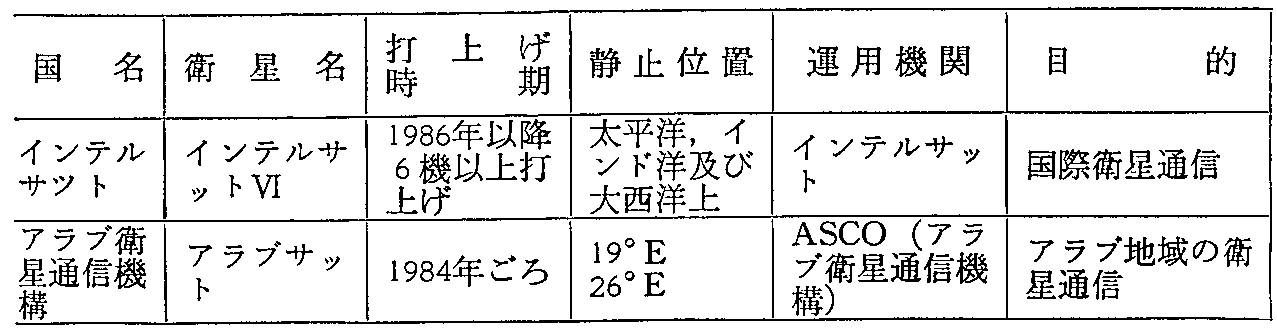 国名
衛星名
打上げ
時期
静止位置
運用機関
目的
インテル
サツト
インテルサ
ットⅥ
1986年以降
6機以上打
上げ
太平洋，イ
ンド洋及び
大西洋上
インテルサッ
ト
国際衛星通信
アラブ衛
星通信機
構
アラブサッ
ト
1984年ごろ
19°E
26°E
ASCO（アラ
ブ衛星通信機
構）
アラブ地域の衛
星通信